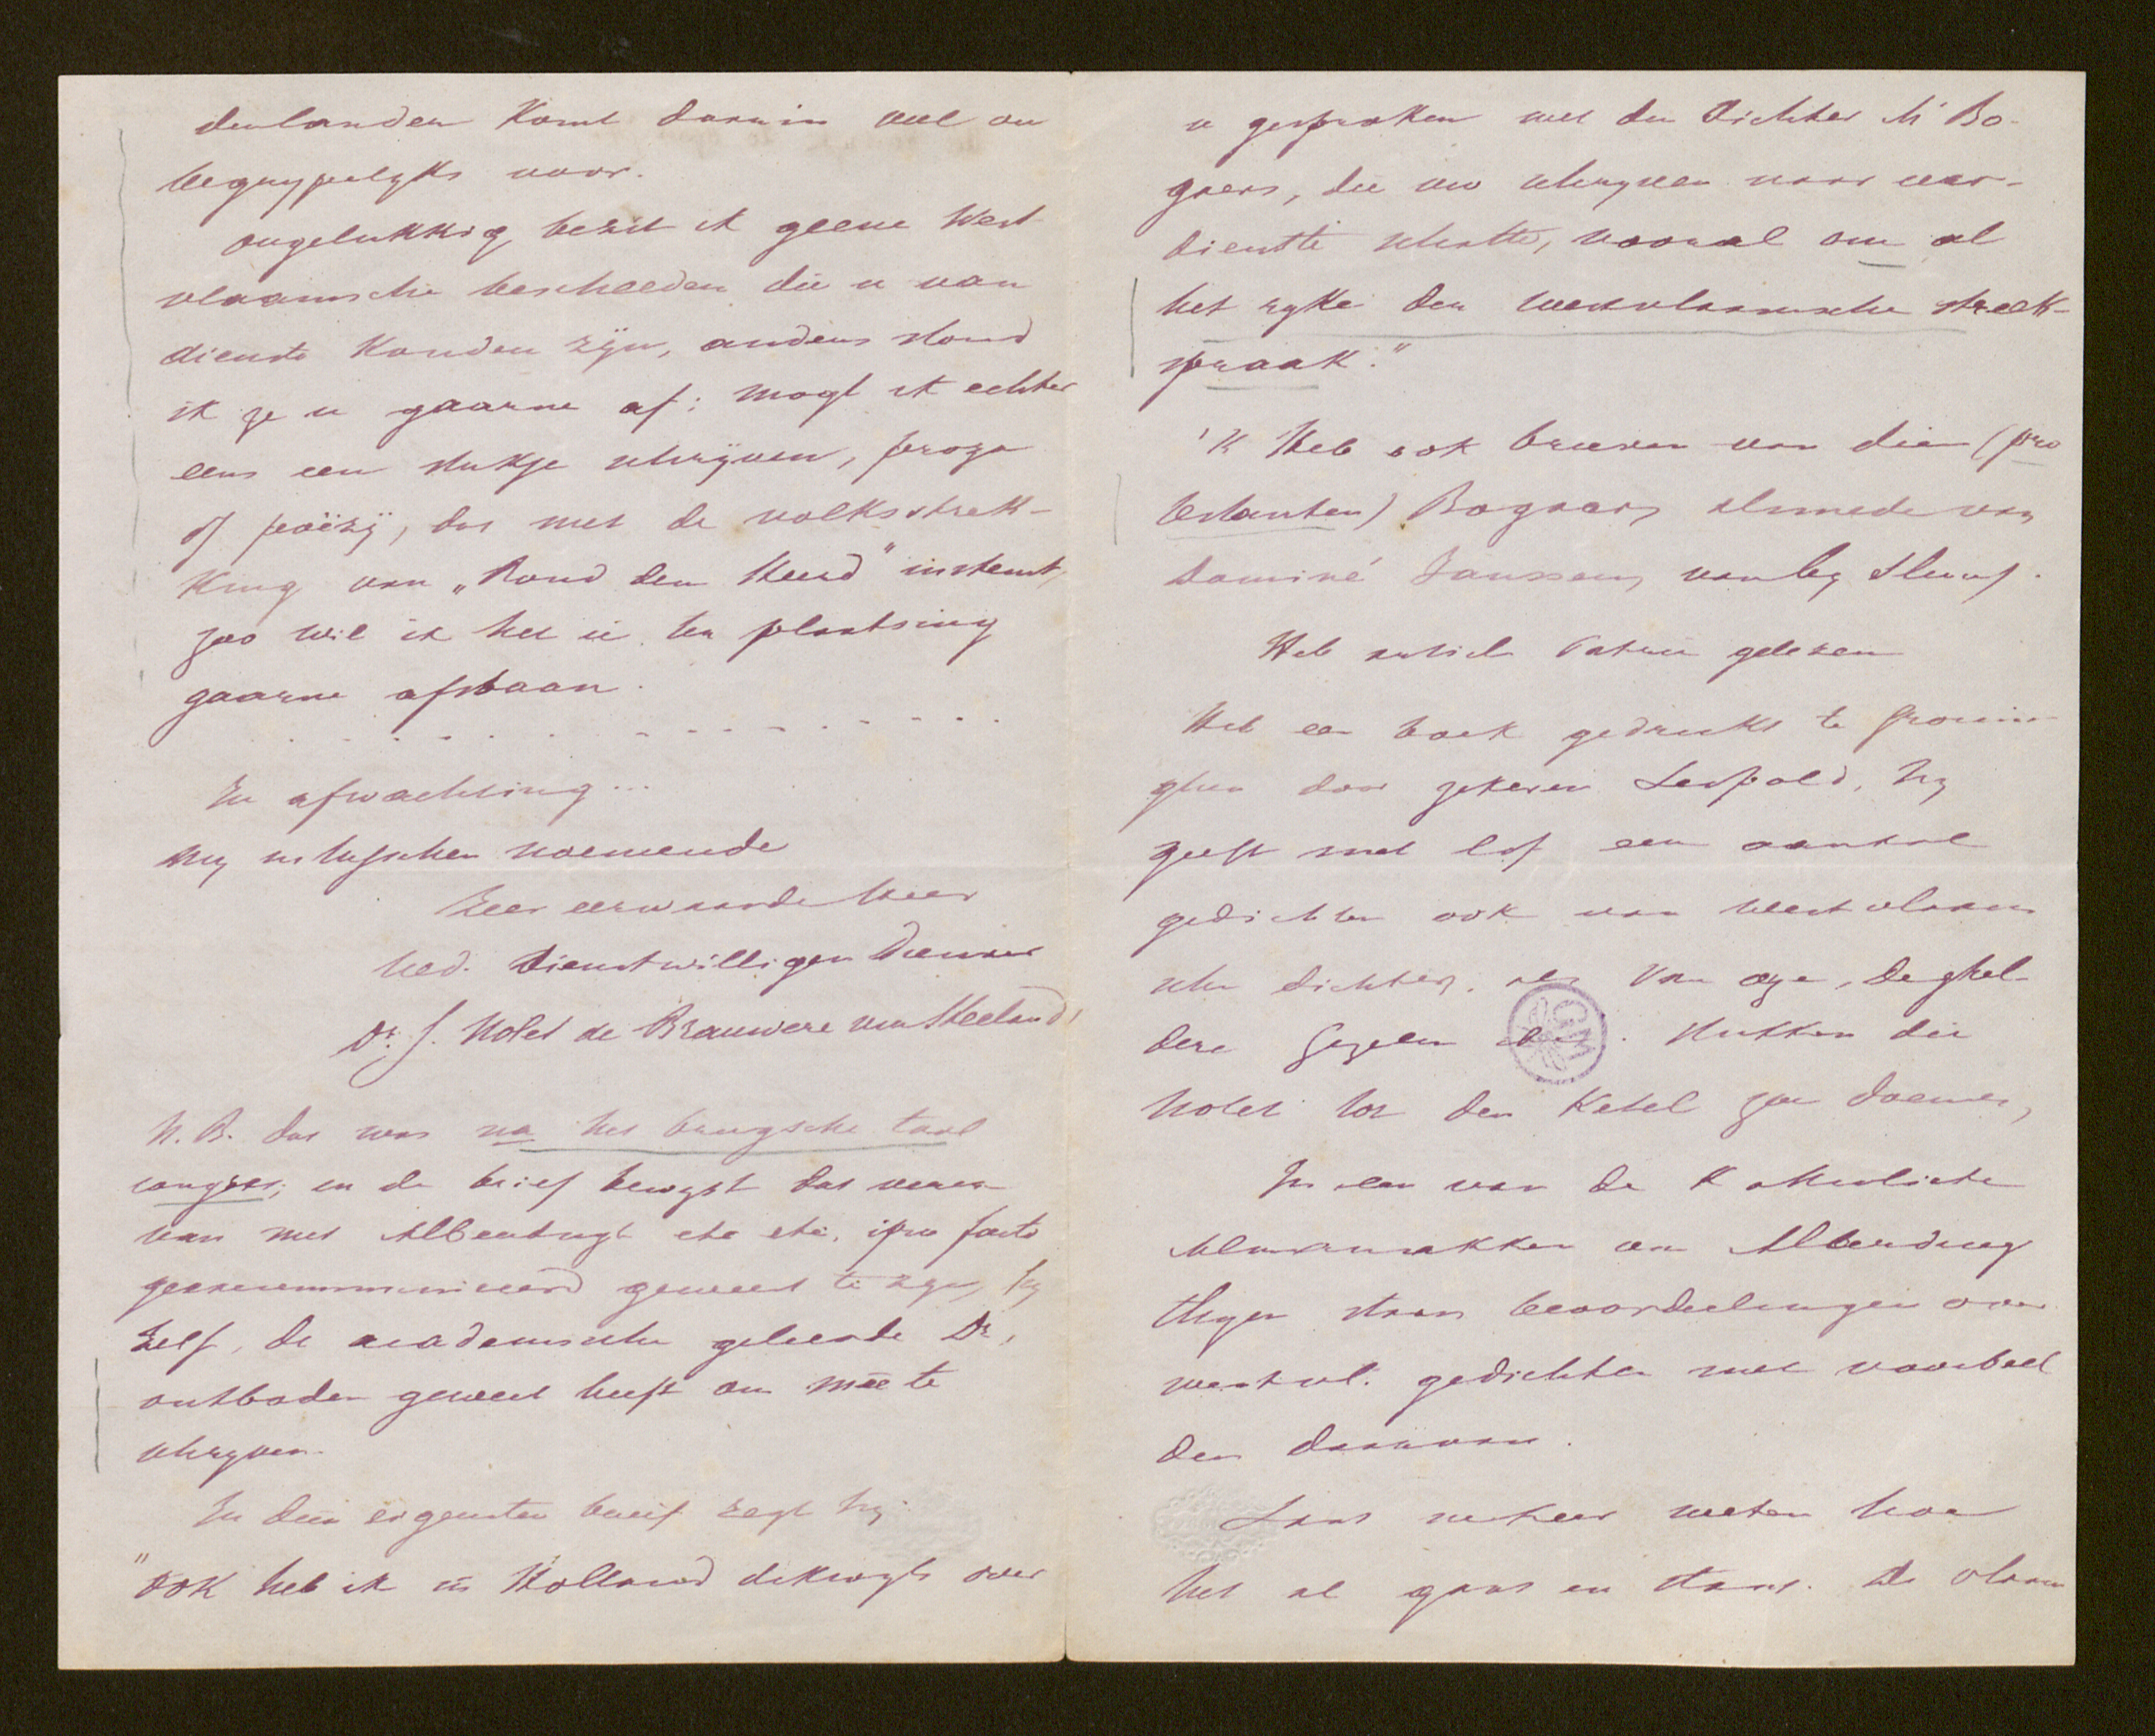 derlanden komt daarin veel on
begrypelyks voor.
ongelukkig bezit ik geene West
vlaamsche bescheeden die u van
dienste konden zÿn, anders stond
ik ze u gaarne af; mogt ik echter
eens een stukje schrÿven, proza
of poëzÿ, dat met de volksstrek-
king van „Rond den Heerd" instemt,
zoo wil ik het u ter plaatsing
gaarne afstaan.
In afwachting...
my intusschen noemende
Zeer eerwaarde Heer
Ued. dienstwilligen Dienaar
Dr. J. Nolet de Brauwere van Steeland,
N.B. dat was na het brugsche taal
congres; en de brief bewyst dat verre
van met Alberdingk etc etc. ipso facto
geexcommuniceerd geweest te zyn, hy
zelf, de academische geleerde Dr,
ontboden geweest heeft om meê te
schryven.
In dien eigensten brief zegt hy:
"Ook heb ik in Holland dikwyls over
u gesproken met den dichter Mr Bo-
gaers, die uw schryven naar ver-
dienste schatte, vooral om al
het ryke der westvlaamsche streek-
spraak."
'k Heb ook brieven van dien (pro
testanten) Bogaers, alsmede van
Dominé Janssen, van by Sluus.
Heb artikel Patrie gelezen
Heb een boek gedrukt te Gronin-
ghen door zekeren Leopold, hy
geeft met lof een aantal
gedichten ook van westvlaam
sche dichters, als Van oye, De ghel-
dere Gezelle . Stukken die
Nolet tot den ketel zou doemen,
In een van de Katholieke
Almanakken van Alberding
thym staan beoordeelingen over
westvl. gedichten met voorbeel
den daarvan.
Laat mekeer weten hoe
het al gaat en staat. De vlaam
GM